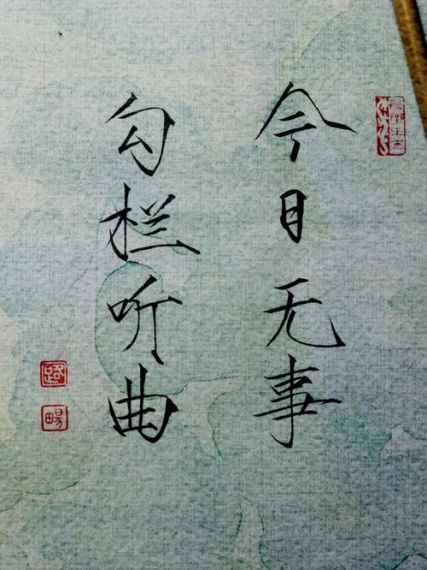 今日无事
勾栏听曲
路
畼